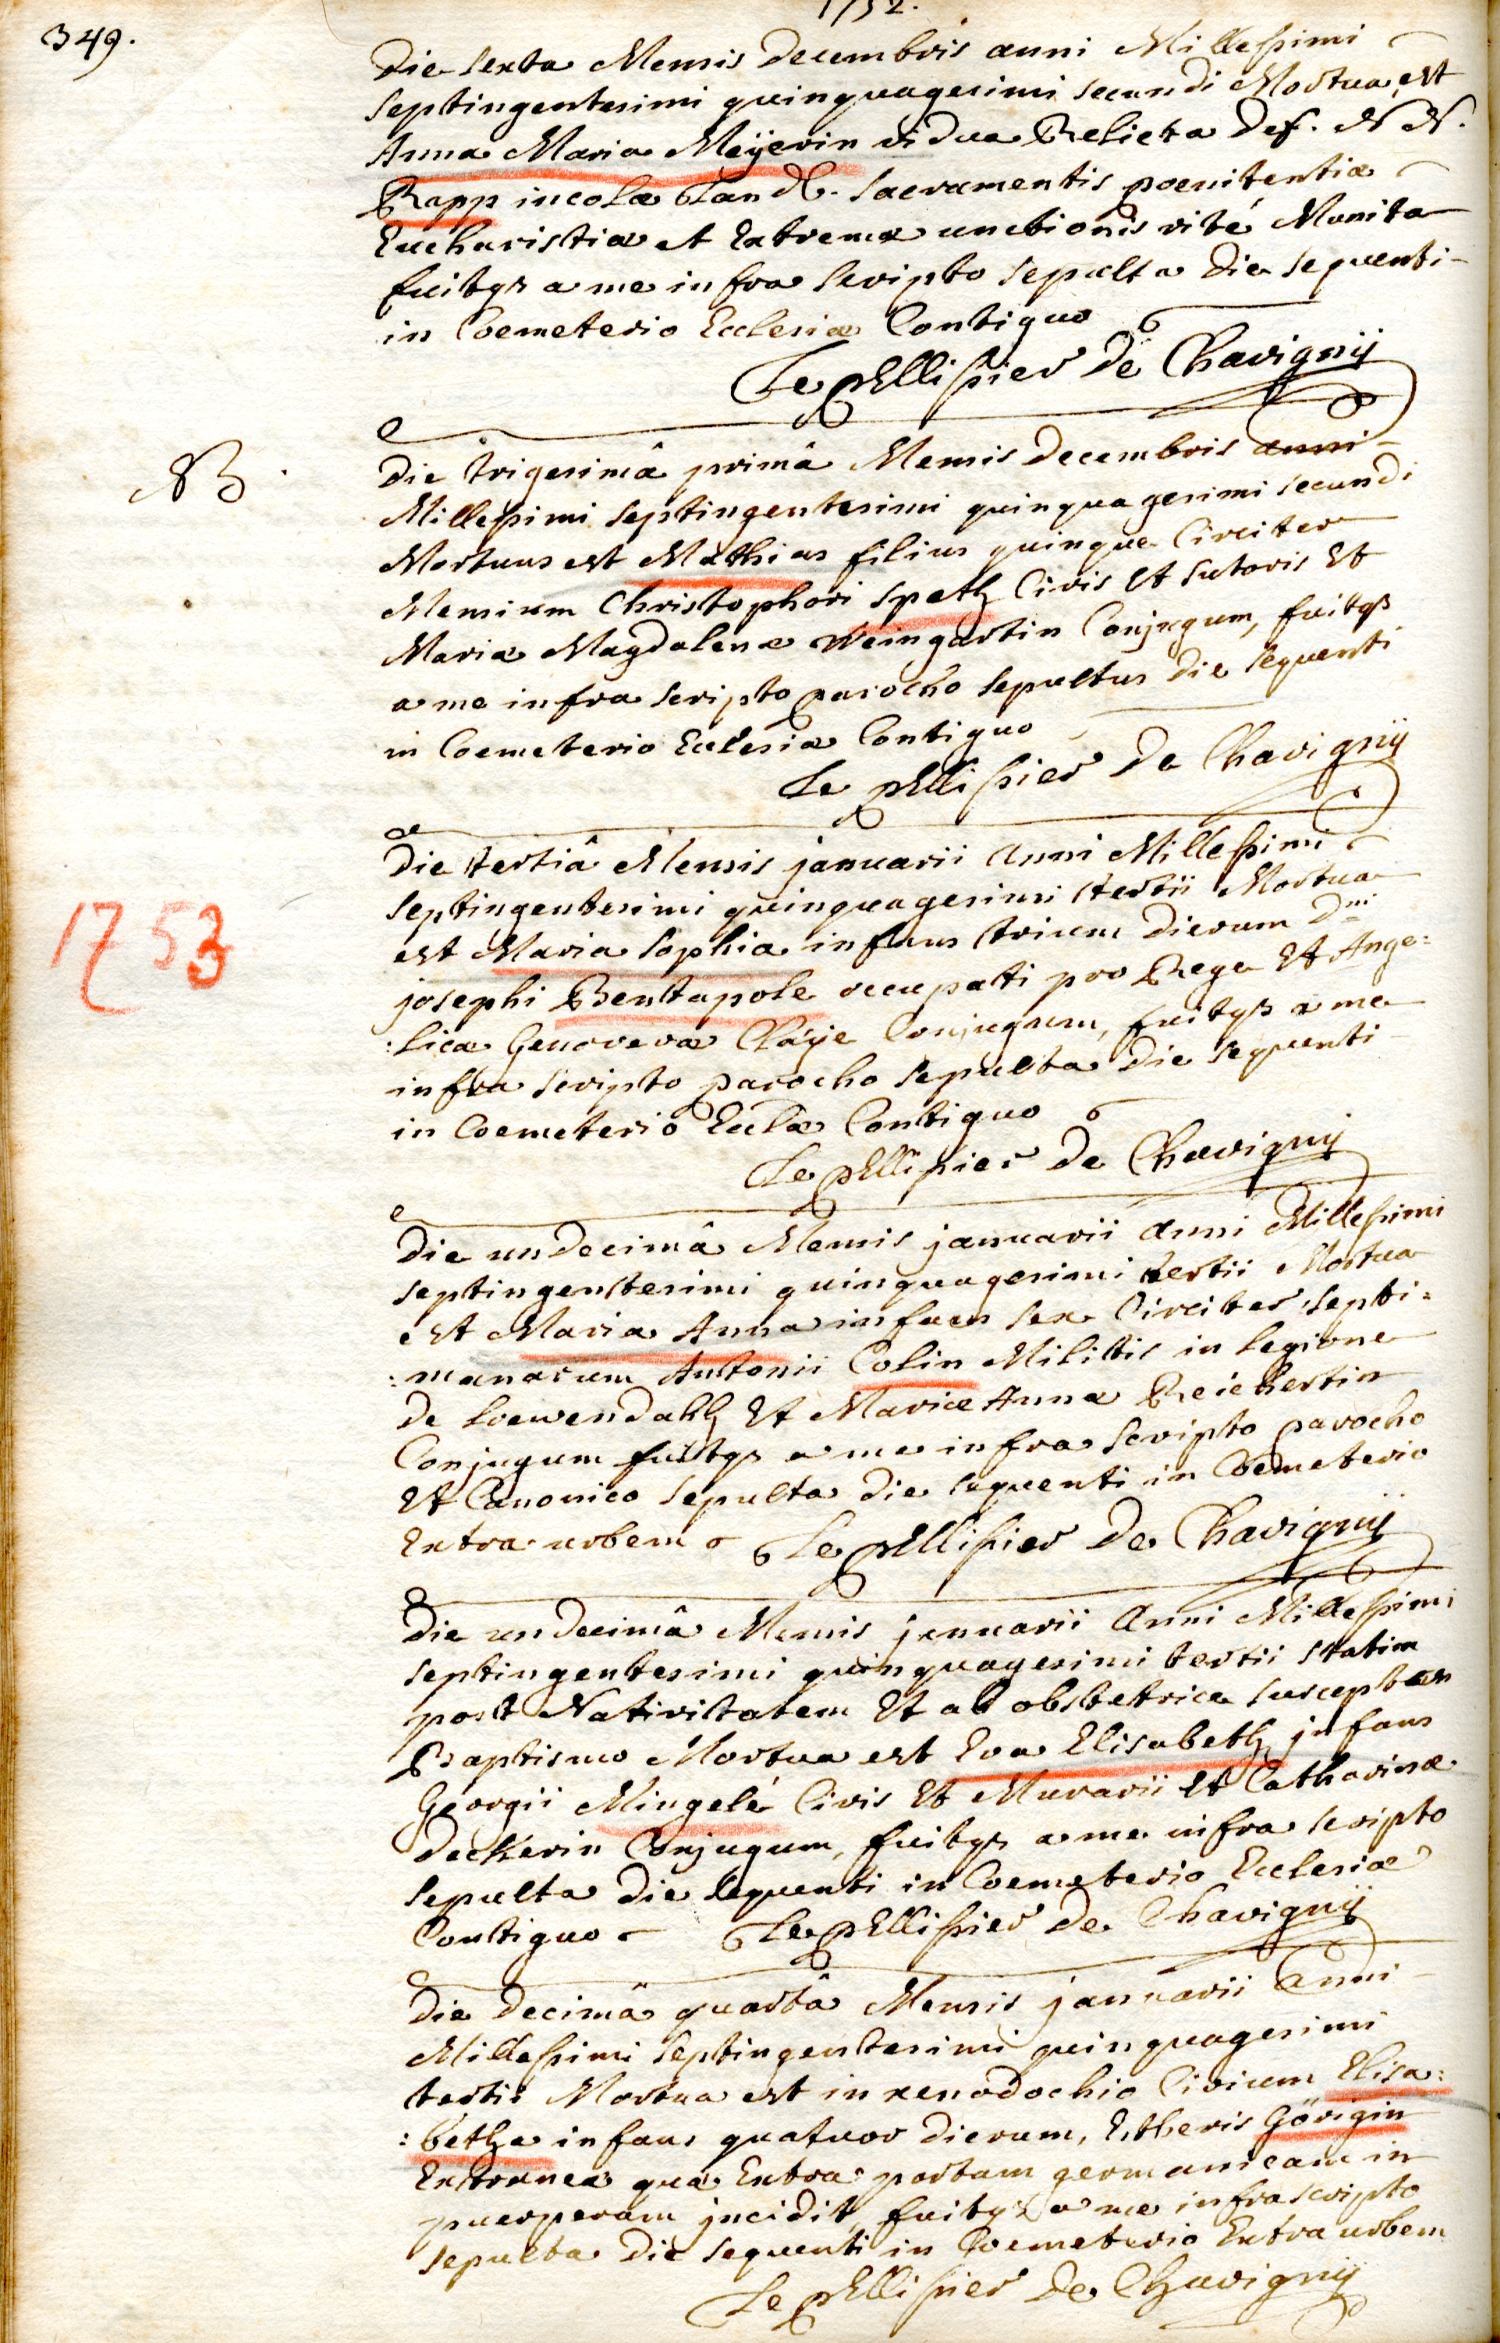 349.
1752.
Die sexta Mensis decembris anni Millessimi
septingentesimi quinquagesimi secundi Mortua est
Anna Maria Meÿerin vidua Relicta def. N N.
Rapp incolæ Land. Sacramentis pœnitentiæ
Eucharistiæ et Extremæ unctionis rité Munita
fuitqz a me infra scripto sepulta die sequenti
in Coemeterio Ecclesiæ Contiguo
Le pellissier de Chavignÿ
NB.
Die trigesimâ primâ Mensis decembris anni
Millessimi septingentesimi quinquagesimi secundi
Mortuus est Mathias filius quinque Circiter
Mensium Christophori Spetz Civis et sutoris Et
Mariæ Magdalenæ Weingartin Conjugum, fuitqz
a me infra scripto parocho sepultus die sequenti
in Coemeterio Ecclesiæ Contiguo
Le pellissier De Chavignÿ
1753
Die tertiâ Mensis januarii Anni Millessimi
septingentesimi quinquagesimi tertii Mortua
est Maria Sophia infans trium dierum Dni
josephi Bentapole occupati pro Rege Et Ange=
:licæ Genovevæ Claÿe Conjugum, fuitqz a me
infra scripto parocho sepulta die sequenti
in Coemeterio Eccläe Contiguo
Le pellissier de Chavignÿ
Die undecimâ Mensis januarii anni Millessimi
septingentesimi quinquagesimi tertii Mortua
est Maria Anna infans sex Circiter septi=
:manarum Antonii Colin Militis in legione
de Loewendahl Et Mariæ Annæ Reichertin
Conjugum fuitqz a me infra scripto parocho
Et Canonico sepulta die sequenti in Coemeterio
Extra urbem Le pellissier De Chavignÿ
Die undecimâ Mensis januarii Anni Millessimi
septingentesimi quinquagesimi tertii statim
post Nativitatem Et ab obstetrice susceptum
Baptismo Mortua est Eva Elisabetha infans
Georgii Mingelé Civis Et Murarii Et Catharinæ
Deckerin Conjugum, fuitqz a me infra scripto
sepulta die sequenti in Coemeterio Ecclesiæ
Contiguo Le pellissier De Chavignÿ
Die decimâ quartâ Mensis januarii Anni
Millessimi septingentesimi quinquagesimi
tertii Mortua est in xenodochio Civium Elisa=
:betha infans quatuor dierum, Estheris Görigin
Extranea qua Extra portam germanicam in
puerperam incidit, fuitqz a me infra scripto
sepulta die sequenti in Coemeterio Extra urbem
Le pellissier De Chavignÿ